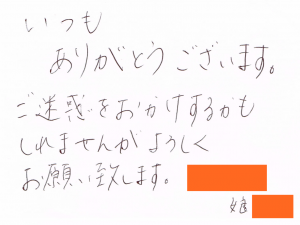 いつも
ありがとうございます。
ご迷惑をおかけするかも
しれませんがよろしく
お願い致します。
娘